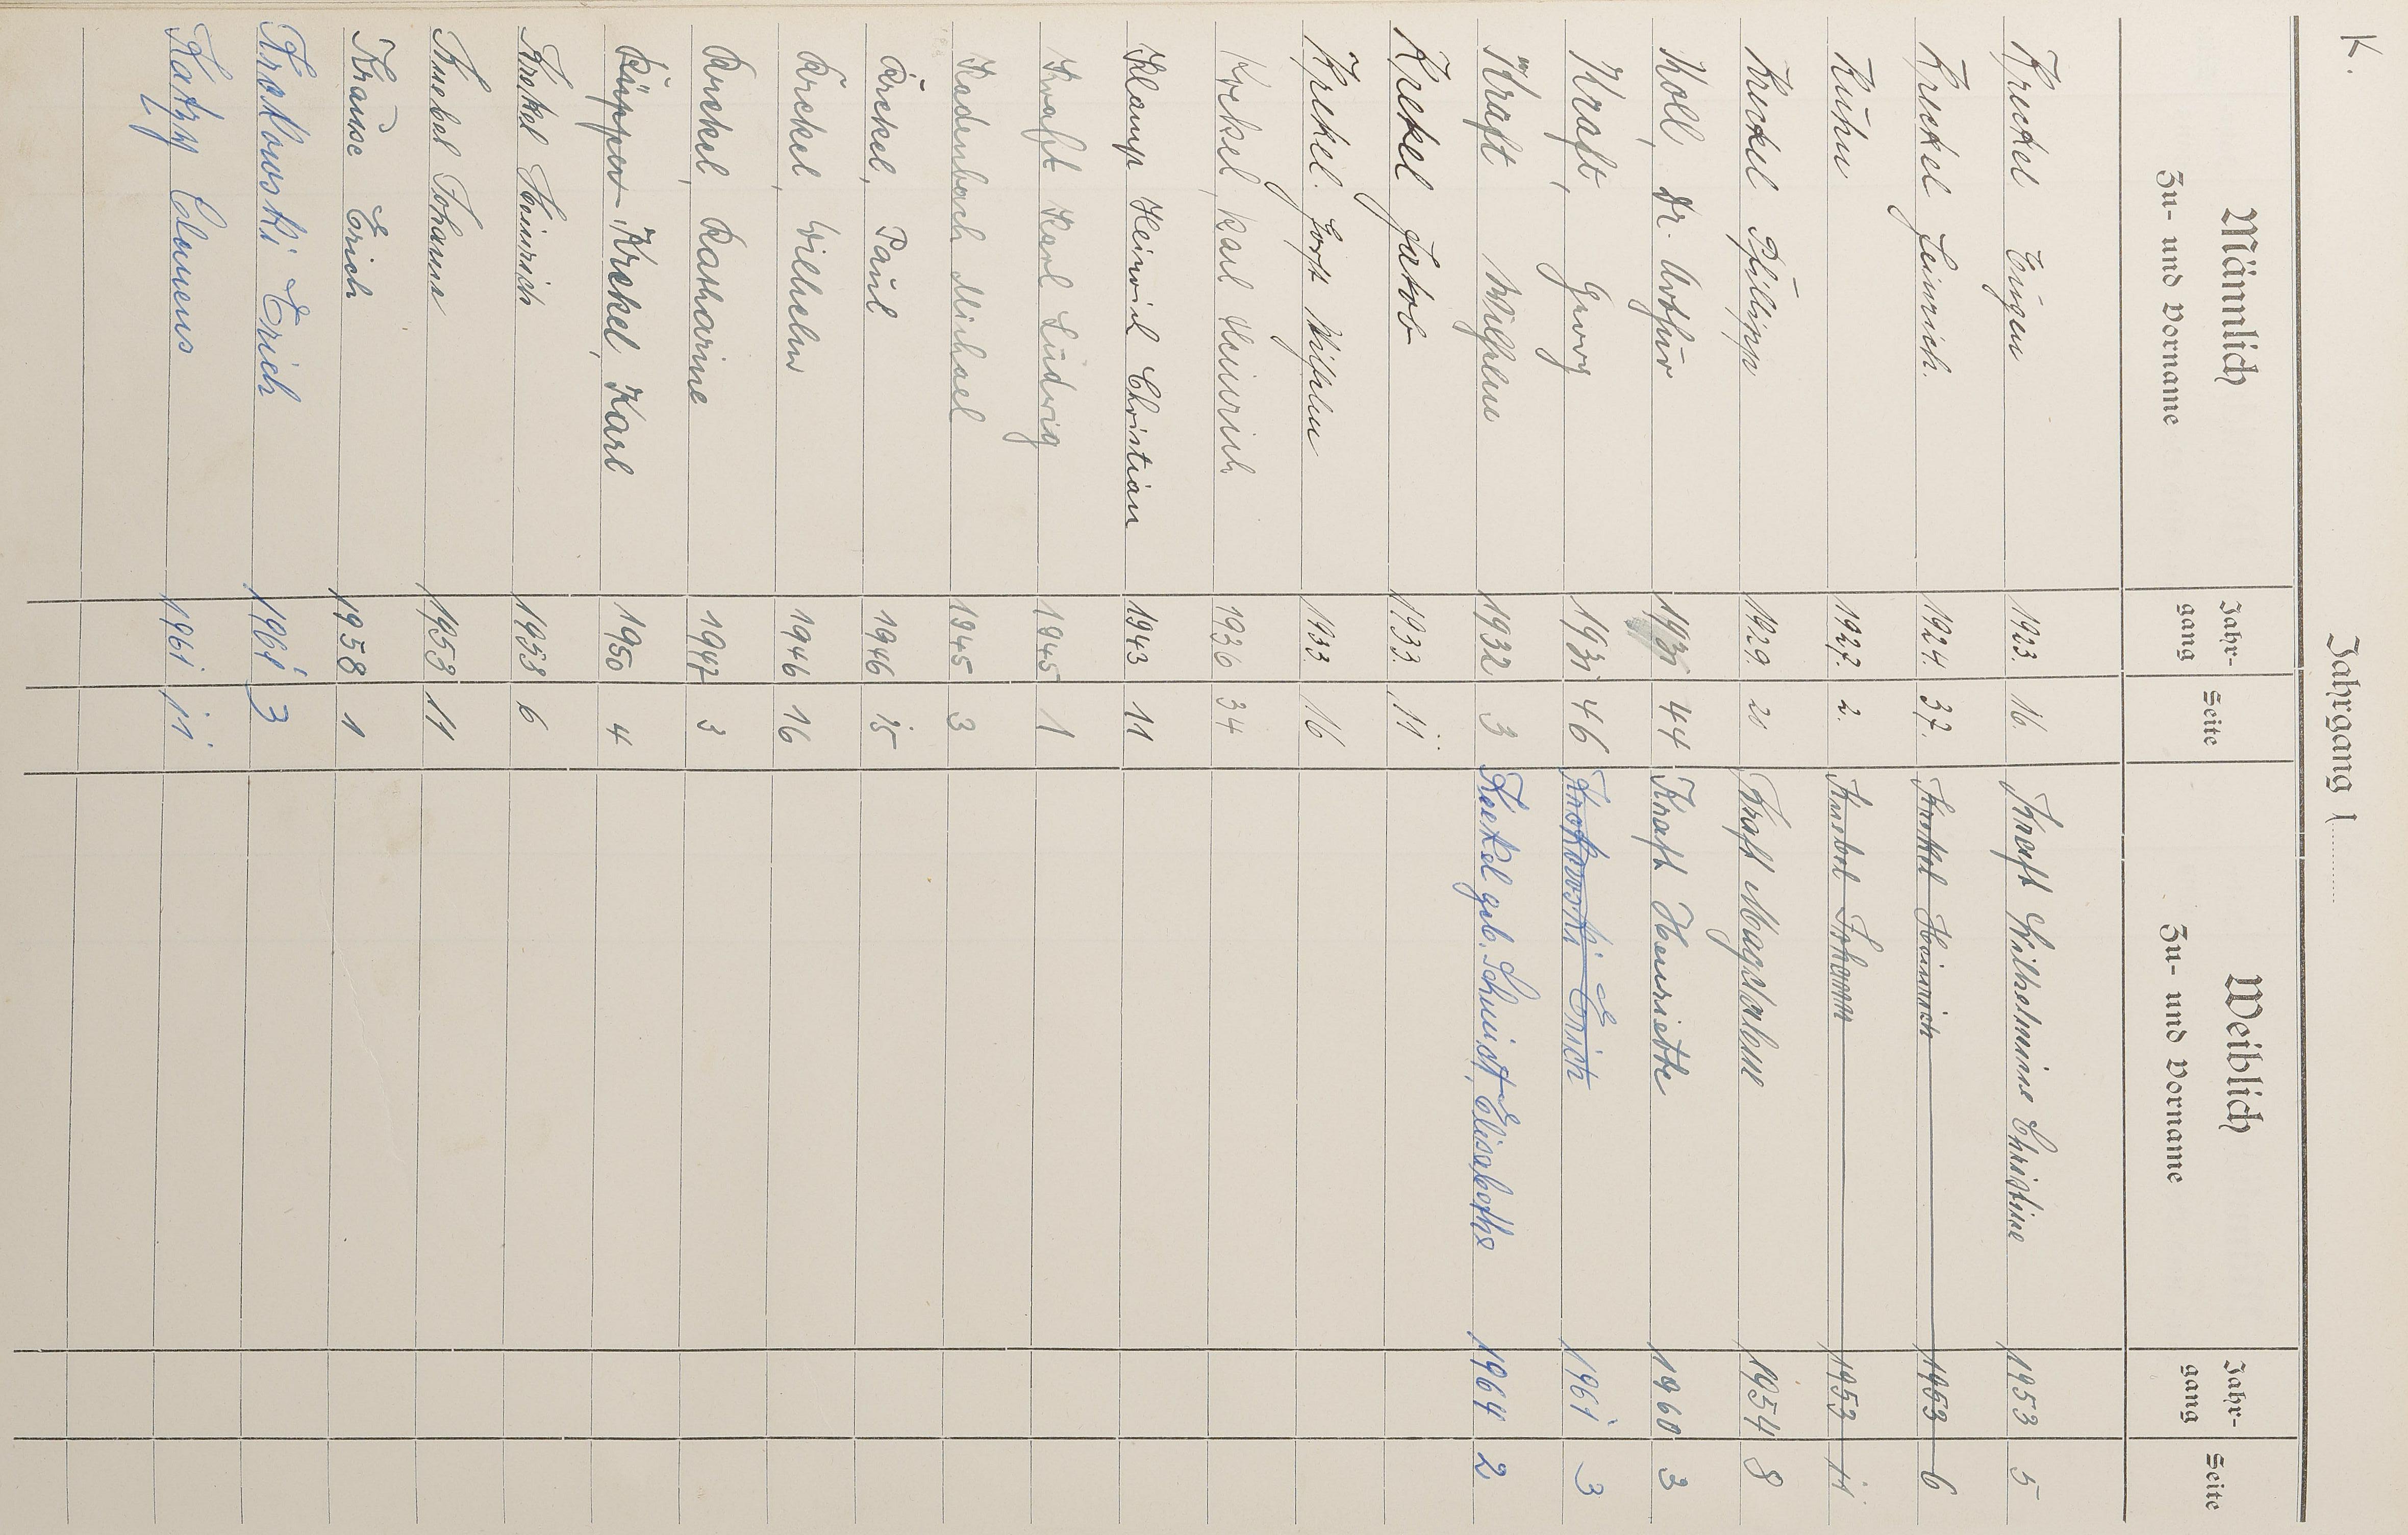 K.
Jahrgang 1
Männlich Weiblich
Zu- und Vorname Jahr- gang Seite Zu- und Vorname Jahr- gang Seite
Kreckel Eugen 1923. 16. Kraft Wilhelmine Christine 1953 5
Kreckel Heinrich. 1924. 37. Kreckel Heinrich 1953 6
Kuhn 1927. 2. Knebel Johann 1953 11
Kreckel Philipp 1929. 21 Kraft Magdalene 1954 8
Koll, Dr. Arthur 1931 44 Kraft Henriette 1960 3
Kraft, Georg 1931 46 Krakowski Erich 1961 3
Kraft Wilhelm 1932 3 Krekel geb. Schmidt, Elisabetha 1964 2
Krekel Jakob 1933. 11
Krekel. Wilhelm 1933. 16
Krekel, Karl Heinrich 1936 34
Klamp Heinrich Christian 1943 11
Kraft Karl Ludwig 1945 1
Kadenbach Michael 1945 3
Kreckel, Paul 1946 15
Kreckel, Wilhelm 1946 16
Kreckel, Katharine 1947 3
Küpper Krekel, Karl 1950 4
Krekel Heinrich 1953 6
Knebel Johann 1953 11
Krause Erich 1958 1
Krakowski Erich 1961 3
Katzy Clemens 1961 11